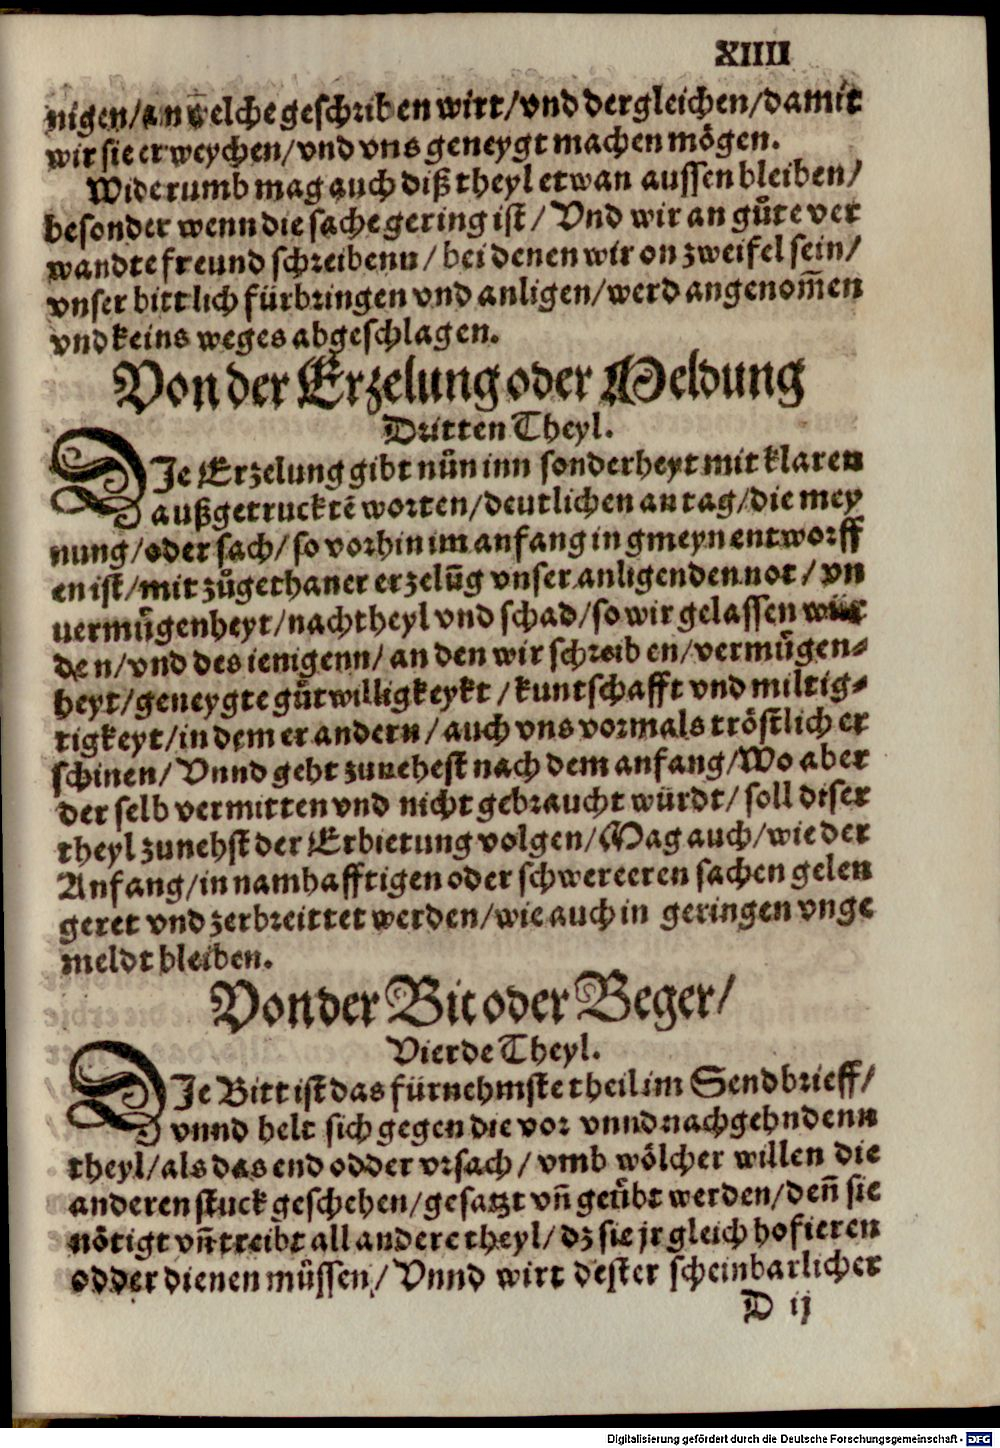 XIIII
nigen/an welche geschriben wirt/vnd dergleichen/damit
wir sie erweychen/vnd vns geneygt machen mögen.
Widerumb mag auch diß theyl etwan aussen bleiben/
besonder wenn die sache gering ist/ Vnd wir an gůte ver
wandte freund schreibenn/ bei denen wir on zweifel sein/
vnser bittlich fürbringen vnd anligen/werd angenom̄en
vnd keins weges abgeschlagen.
Von der Erzelung oder Meldung
Dritten Theyl.
DJe Erzelung gibt nůn inn sonderheyt mit klaren
außgetrucktē worten/deutlichen an tag/die mey
nung/oder sach/ so vorhin im anfang in gmeyn entworff
en ist/mit zůgethaner erzelūg vnser anligenden not/ vn
uermůgenheyt/nachtheyl vnd schad/so wir gelassen wür
den/vnd des ienigenn/ an den wir schreiben/vermůgen-
heyt/geneygte gůtwilligkeykt /kuntschafft vnd miltig-
tigkeyt/in dem er andern/ auch vns vormals tröstlich er
schinen/ Vnnd geht zunehest nach dem anfang/Wo aber
der selb vermitten vnd nicht gebraucht würdt/ soll diser
theyl zunehst der Erbietung volgen/Mag auch/wie der
Anfang/in namhafftigen oder schwereeren sachen gelen
geret vnd zerbreittet werden/wie auch in geringen vnge
meldt bleiben.
Von der Bit oder Beger/
Vierde Theyl.
DJe Bitt ist das fürnehmste theil im Sendbrieff/
vnnd helt sich gegen die vor vnnd nachgehndenn
theyl/als das end odder vrsach/ vmb wölcher willen die
anderen stuck geschehen/gesatzt vn̄ geůbt werden/den̄ sie
nötigt vn̄ treibt all andere theyl/ dz sie jr gleich hofieren
odder dienen müssen/ Vnnd wirt dester scheinbarlicher
D ij
Digitalisierung gefördert durch die Deutsche Forschungsgemeinschaft - DFG